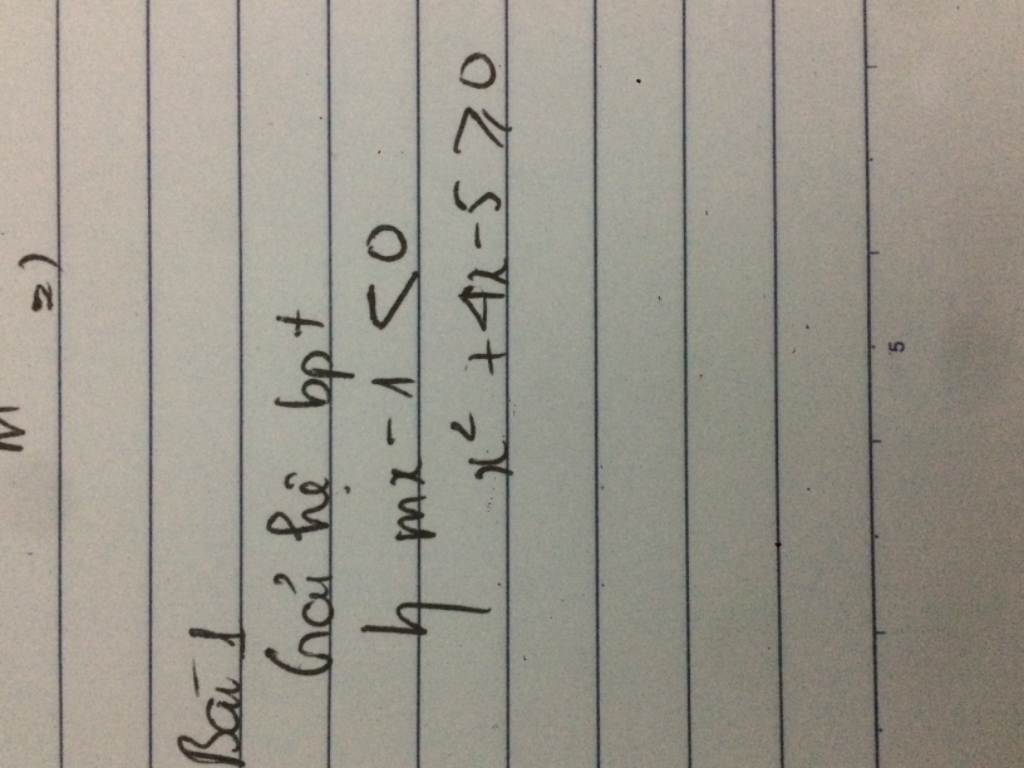 2)
Bài 1
Giải hệ bpt
{ mx - 1 < 0
x² + 4x - 5 ⩾ 0
5